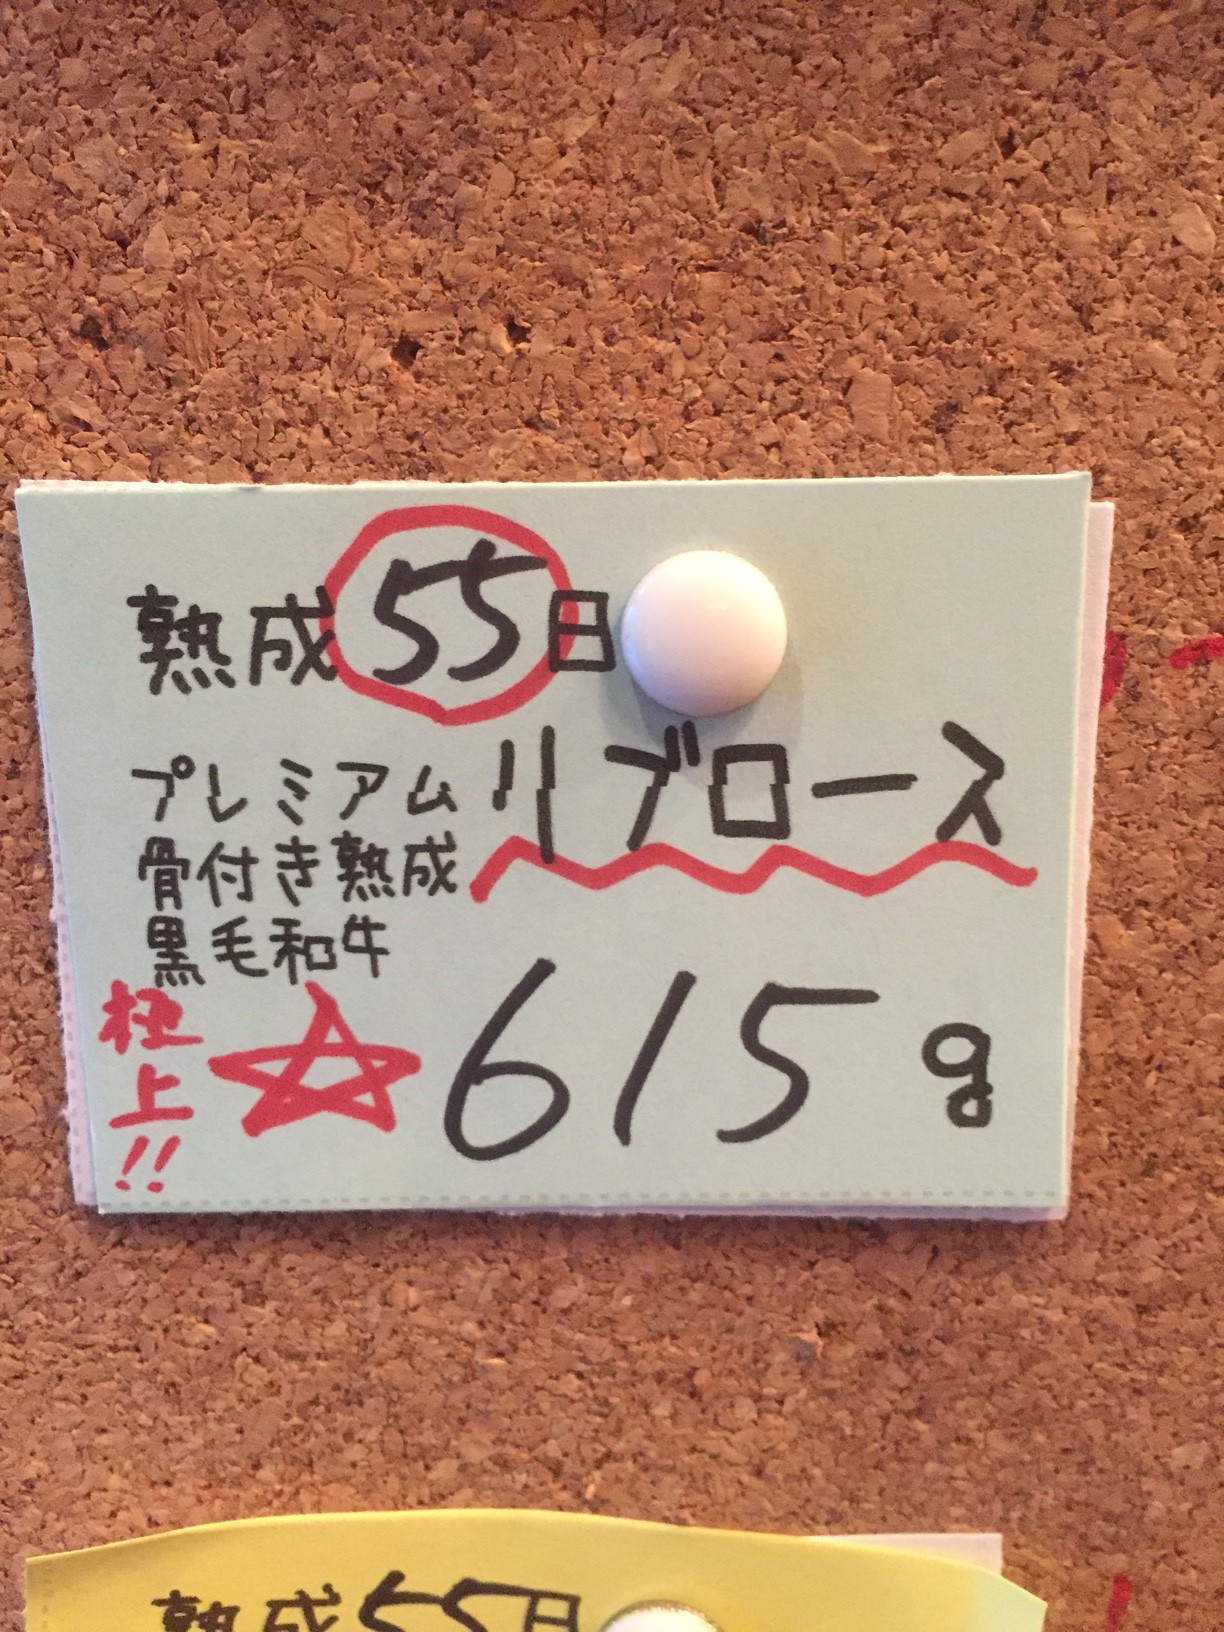 熟成55日
プレミアム
骨付き熟成
黒毛和牛
リブロース
極上!!
☆615g
熟成55日